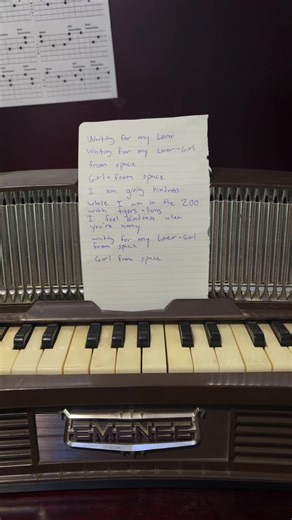 Waiting for my Lover
Waiting for my Lover-Girl
from space
Girl-from space
I am giving kindness
While I am in the ZOO
with tigers-lions
I feel kindness when
you're away
waiting for my Lover-Girl
from space
Girl from space
EMENEE